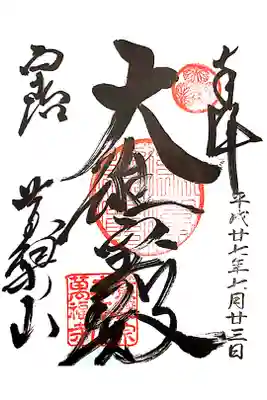 奉拝
平成廿七年七月廿三日
大雄寳殿
黄檗山
萬福寺